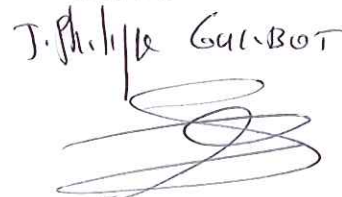 J. Philippe GUILBOT